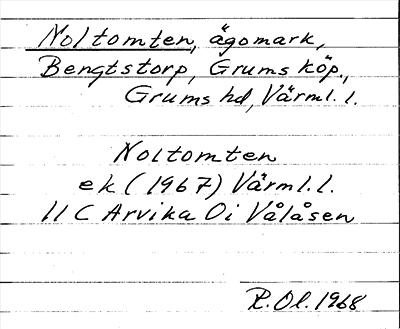 Noltomten, ägomark,
Bengtstorp, Grums köp.,
Grums hd, Värml. l.
Noltomten
ek (1967) Värml. l.
11 C Arvika Oi Vålåsen
R. Ol. 1968